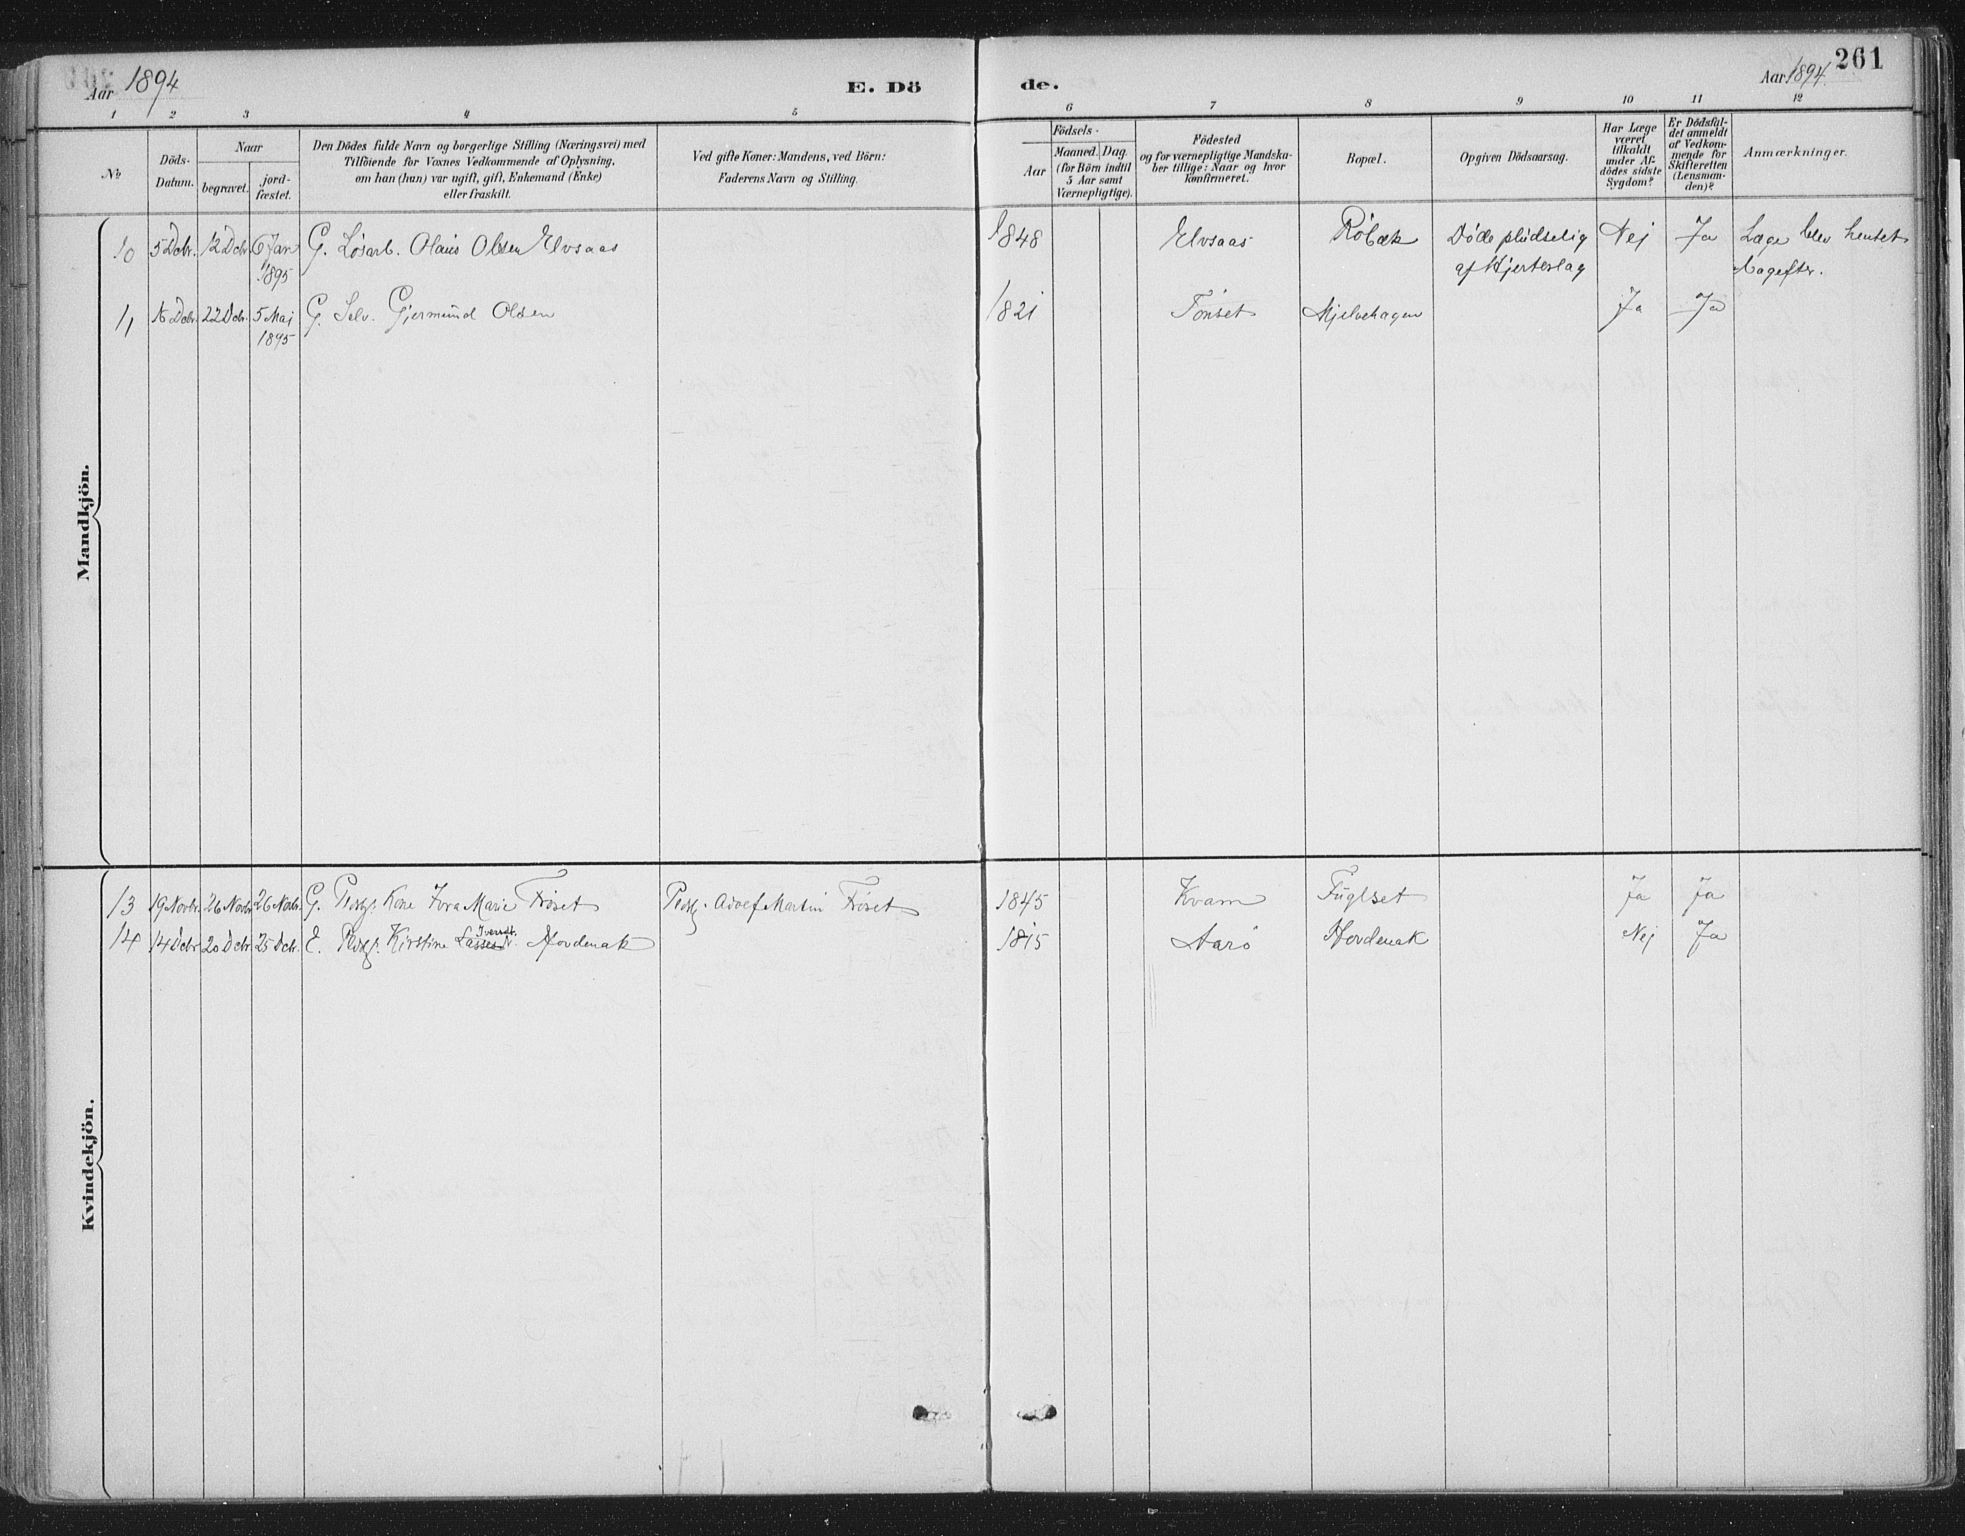 Aar 1894 E. Dö de. Aar 1894. 261
1 2 3 4 5 6 7 8 9 10 11 12
No
Döds-Datum.
Naar
begravet. jord-fæstet.
Den Dödes fulde Navn og borgerlige Stilling (Næringsvei) med
Tilföiende for Voxnes Vedkommende af Oplysning,
om han (hun) var ugift, gift, Enkemand (Enke)
eller fraskilt.
Ved gifte Koner: Mandens, ved Börn:
Faderens Navn og Stilling.
Födsels-
Aar Maaned. Dag.
(for Börn indtil
5 Aar samt
Værnepligtige).
Födested
og for værnepligtige Mandska-
ber tillige: Naar og hvor
konfirmeret.
Bopæl.
Opgiven Dödsaarsag.
Har Læge
været
tilkaldt
under Af-
dödes sidste
Sygdom?
Er Dödsfal-
det anmeldt
af Vedkom-
mende for
Skifteretten
(Lensman-
den)?
Anmærkninger.
Mandkjön.
10 5 Dcbr. 12 Dcbr. 6 Jan 1895 G. Løsarb. Olaus Olsen Elvsaas 1848 Elvsaas Röbæk Döde pludselig af Hjerteslag Nej Ja Læge blev hentet bagefter.
11 16 Dcbr. 22 Dcbr. 5 Maj 1895 G. Selv. Gjermund Olsen 1821 Tönset Mjelvehagen Ja Ja
Kvindekjön.
13 19 Novbr. 26 Novbr. 26 Novbr. G. Pladsg. Kone Marie Fröset Adolf Martin Fröset 1845 Kvam Fuglset Ja Ja
14 14 Dcbr. 20 Dcbr. 25 Dcbr. E. Kirstine Hovdenak 1815 Aarö Hovdenak Nej Ja